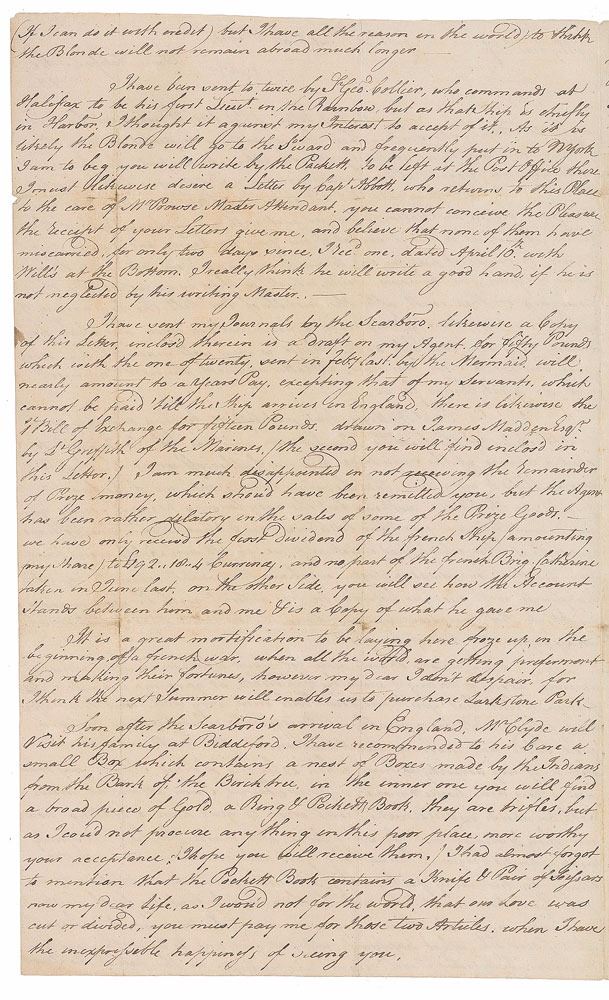 (If I can do it with credit) but I have all the reason in the world, to think
the Blonde will not remain abroad much longer —
I have been sent to twice by Sr. Geo: Collier, who commands at
Halifax to be his first Lieut. in the Rainbow, but as that ship is chiefly
in Harbor, I thought it against my Interest to accept of it, As it is
likely the Blonde will go to the So.ward and frequently put in to N York
I am to beg you will write by the Packett, To be left at the Post Office there
I must likewise desire a Letter by Capt. Abbott who returns to this Place
to the care of Mr. Prowse Master Attendant, you cannot conceive the Pleasure
the receipt of your Letters give me, and believe that none of them have
miscarried, for only two days since, I recd. one, dated April 10th. with
Will's at the Bottom, I really think he will write a good hand, if he is
not neglected by his writing Master. —
I have sent my Journals by the Scarboro, likewise a Copy
of this Letter, inclos'd therein is a draft on my Agent for fifty Pounds
which with the one of twenty, sent in Feby. last by the Mermaid will
nearly amount to a Years Pay, excepting that of my Servants, which
cannot be paid 'till the ship arrives in England, there is likewise the
1st. Bill of Exchange for fifteen Pounds, drawn on James Madden Esqr.
by Lt. Griffith of the Marines, (the second you will find inclosd in
this Letter.) I am much disappointed in not receiving the remainder
of Prize money, which should have been remitted you, but the Agent
has been rather dilatory in the sales of some of the Prize Goods,
we have only receivd the first Dividend of the french ship, amounting
my share) to £92..18..4 Currency, and no part of the french Brig Catherine
taken in June last, on the other Side, you will see how the Account
Stands between him and me & is a Copy of what he gave me
It is a great mortification to be laying here froze up, in the
beginning of a french war, when all the world, are getting preferment
and making their fortunes, however my dear I don't despair, for
I think the next Summer will enables us to purchase Larkstone Park
Soon after the Scarboro's arrival in England, Mr. Clyde will
Visit his family at Biddeford, I have recommended to his Care a
small Box which contains a nest of Boxes made by the Indians
from the Bark of the Birch tree, in the inner one you will find
a broad piece of Gold a Ring & Pockett Book, they are trifles, but
as I could not procure any thing in this poor place, more worthy
your acceptance, (I hope you will receive them.) I had almost forgot
to mention that the Pockett Book contains a Knife & Pair of Scissars
now my dear Life, as I wou'd not for the world, that our Love was
cut or divided, you must pay me for those two Articles, when I have
the inexpressible happiness of seeing you.